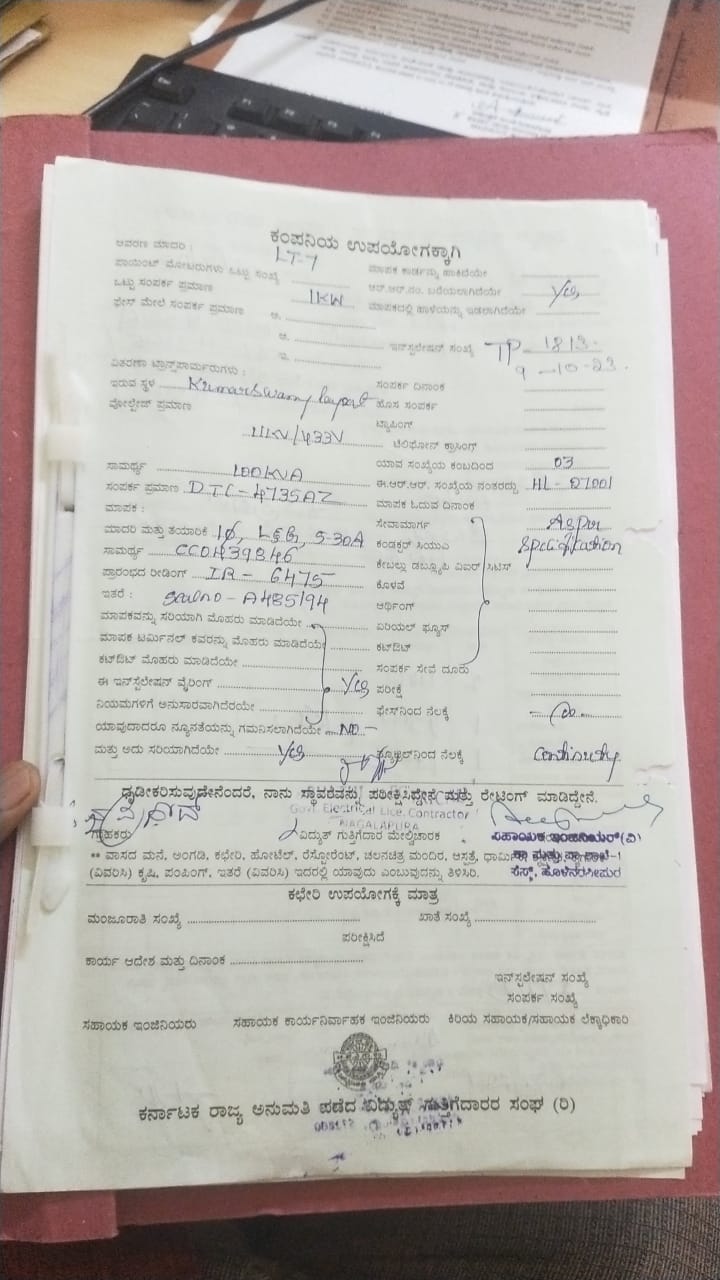 ಕಂಪನಿಯ ಉಪಯೋಗಕ್ಕಾಗಿ
ಆವರಣ ಮಾದರಿ : LT-7 ಮಾಪಕ ಕಾರ್ಡನ್ನು ಹಾಕಿದೆಯೇ
ಪಾಯಿಂಟ್ ಮೋಟರುಗಳು ಒಟ್ಟು ಸಂಖ್ಯೆ ಆರ್.ಆರ್.ನಂ. ಬರೆಯಲಾಗಿದೆಯೇ Yes
ಒಟ್ಟು ಸಂಪರ್ಕ ಪ್ರಮಾಣ 1KW ಮಾಪಕದಲ್ಲಿ ಹಾಳೆಯನ್ನು ಇಡಲಾಗಿದೆಯೇ
ಫೇಸ್ ಮೇಲೆ ಸಂಪರ್ಕ ಪ್ರಮಾಣ ಅ.
ಆ. ಇನ್‌ಸ್ಟಲೇಷನ್ ಸಂಖ್ಯೆ TP - 1813
ಇ. 9-10-23
ವಿತರಣಾ ಟ್ರಾನ್ಸ್‌ಫಾರ್ಮರುಗಳು :
ಇರುವ ಸ್ಥಳ Kumarswamy layout ಸಂಪರ್ಕ ದಿನಾಂಕ
ವೋಲ್ಟೇಜ್ ಪ್ರಮಾಣ ಹೊಸ ಸಂಪರ್ಕ
ಟ್ಯಾಪಿಂಗ್
11KV/433V ಟೆಲಿಫೋನ್ ಕ್ರಾಸಿಂಗ್
ಸಾಮರ್ಥ್ಯ 100KVA ಯಾವ ಸಂಖ್ಯೆಯ ಕಂಬದಿಂದ 03
ಸಂಪರ್ಕ ಪ್ರಮಾಣ DTC-4735AZ ಈ.ಆರ್.ಆರ್. ಸಂಖ್ಯೆಯ ನಂತರದ್ದು HL-27001
ಮಾಪಕ : ಮಾಪಕ ಓದುವ ದಿನಾಂಕ
ಮಾದರಿ ಮತ್ತು ತಯಾರಿಕೆ 1ϕ, L&G, 5-30A ಸೇವಾಮಾರ್ಗ Asper
ಸಾಮರ್ಥ್ಯ CC0439846 ಕಂಡಕ್ಟರ್ ಸಿಯುಎ Spcification
ಪ್ರಾರಂಭದ ರೀಡಿಂಗ್ IR - 6475 ಕೇಬಲ್ಲು ಡಬ್ಲ್ಯೂಪಿ ವಿಐಆರ್ ಸಿಟಿಸ್
ಇತರೆ : sealno - A485194 ಕೊಳವೆ
ಮಾಪಕವನ್ನು ಸರಿಯಾಗಿ ಮೊಹರು ಮಾಡಿದೆಯೇ ಆರ್ಥಿಂಗ್
ಮಾಪಕ ಟರ್ಮಿನಲ್ ಕವರನ್ನು ಮೊಹರು ಮಾಡಿದೆಯೇ ಏರಿಯಲ್ ಫ್ಯೂಸ್
ಕಟ್‌ಔಟ್ ಮೊಹರು ಮಾಡಿದೆಯೇ ಕಟ್‌ಔಟ್
ಸಂಪರ್ಕ ಸೇವೆ ದೂರು
ಈ ಇನ್‌ಸ್ಟಲೇಷನ್ ವೈರಿಂಗ್ Yes ಪರೀಕ್ಷೆ
ನಿಯಮಗಳಿಗೆ ಅನುಸಾರವಾಗಿದೆರಯೇ ಫೇಸ್‌ನಿಂದ ನೆಲಕ್ಕೆ
ಯಾವುದಾದರೂ ನ್ಯೂನತೆಯನ್ನು ಗಮನಿಸಲಾಗಿದೆಯೇ NO
ಮತ್ತು ಅದು ಸರಿಯಾಗಿದೆಯೇ Yes ನ್ಯೂಟ್ರಲ್‌ನಿಂದ ನೆಲಕ್ಕೆ Continuity
ಧೃಡೀಕರಿಸುವುದೇನೆಂದರೆ, ನಾನು ಸ್ಥಾವರವನ್ನು ಪರೀಕ್ಷಿಸಿದ್ದೇನೆ ಮತ್ತು ರೇಟಿಂಗ್ ಮಾಡಿದ್ದೇನೆ.
Govt. Electrical Lice. Contractor
NAGALAPURA
ಗ್ರಾಹಕರು ವಿದ್ಯುತ್ ಗುತ್ತಿಗೆದಾರ ಮೇಲ್ವಿಚಾರಕ ಸಹಾಯಕ ಇಂಜಿನಿಯರ್(ವಿ)
** ವಾಸದ ಮನೆ, ಅಂಗಡಿ, ಕಛೇರಿ, ಹೋಟೆಲ್, ರೆಸ್ಟೋರೆಂಟ್, ಚಲನಚಿತ್ರ ಮಂದಿರ, ಆಸ್ಪತ್ರೆ,
(ವಿವರಿಸಿ) ಕೃಷಿ, ಪಂಪಿಂಗ್, ಇತರೆ (ವಿವರಿಸಿ) ಇದರಲ್ಲಿ ಯಾವುದು ಎಂಬುವುದನ್ನು ತಿಳಿಸಿರಿ. ಸೆಸ್ಕ್, ಹೊಳೆನರಸೀಪುರ
ಕಛೇರಿ ಉಪಯೋಗಕ್ಕೆ ಮಾತ್ರ
ಮಂಜೂರಾತಿ ಸಂಖ್ಯೆ ಖಾತೆ ಸಂಖ್ಯೆ
ಪರೀಕ್ಷಿಸಿದೆ
ಕಾರ್ಯ ಆದೇಶ ಮತ್ತು ದಿನಾಂಕ
ಇನ್‌ಸ್ಟಲೇಷನ್ ಸಂಖ್ಯೆ
ಸಂಪರ್ಕ ಸಂಖ್ಯೆ
ಸಹಾಯಕ ಇಂಜಿನಿಯರು ಸಹಾಯಕ ಕಾರ್ಯನಿರ್ವಾಹಕ ಇಂಜಿನಿಯರು ಕಿರಿಯ ಸಹಾಯಕ/ಸಹಾಯಕ ಲೆಕ್ಕಾಧಿಕಾರಿ
ಕರ್ನಾಟಕ ರಾಜ್ಯ ಅನುಮತಿ ಪಡೆದ ವಿದ್ಯುತ್ ಗುತ್ತಿಗೆದಾರರ ಸಂಘ (ರಿ)